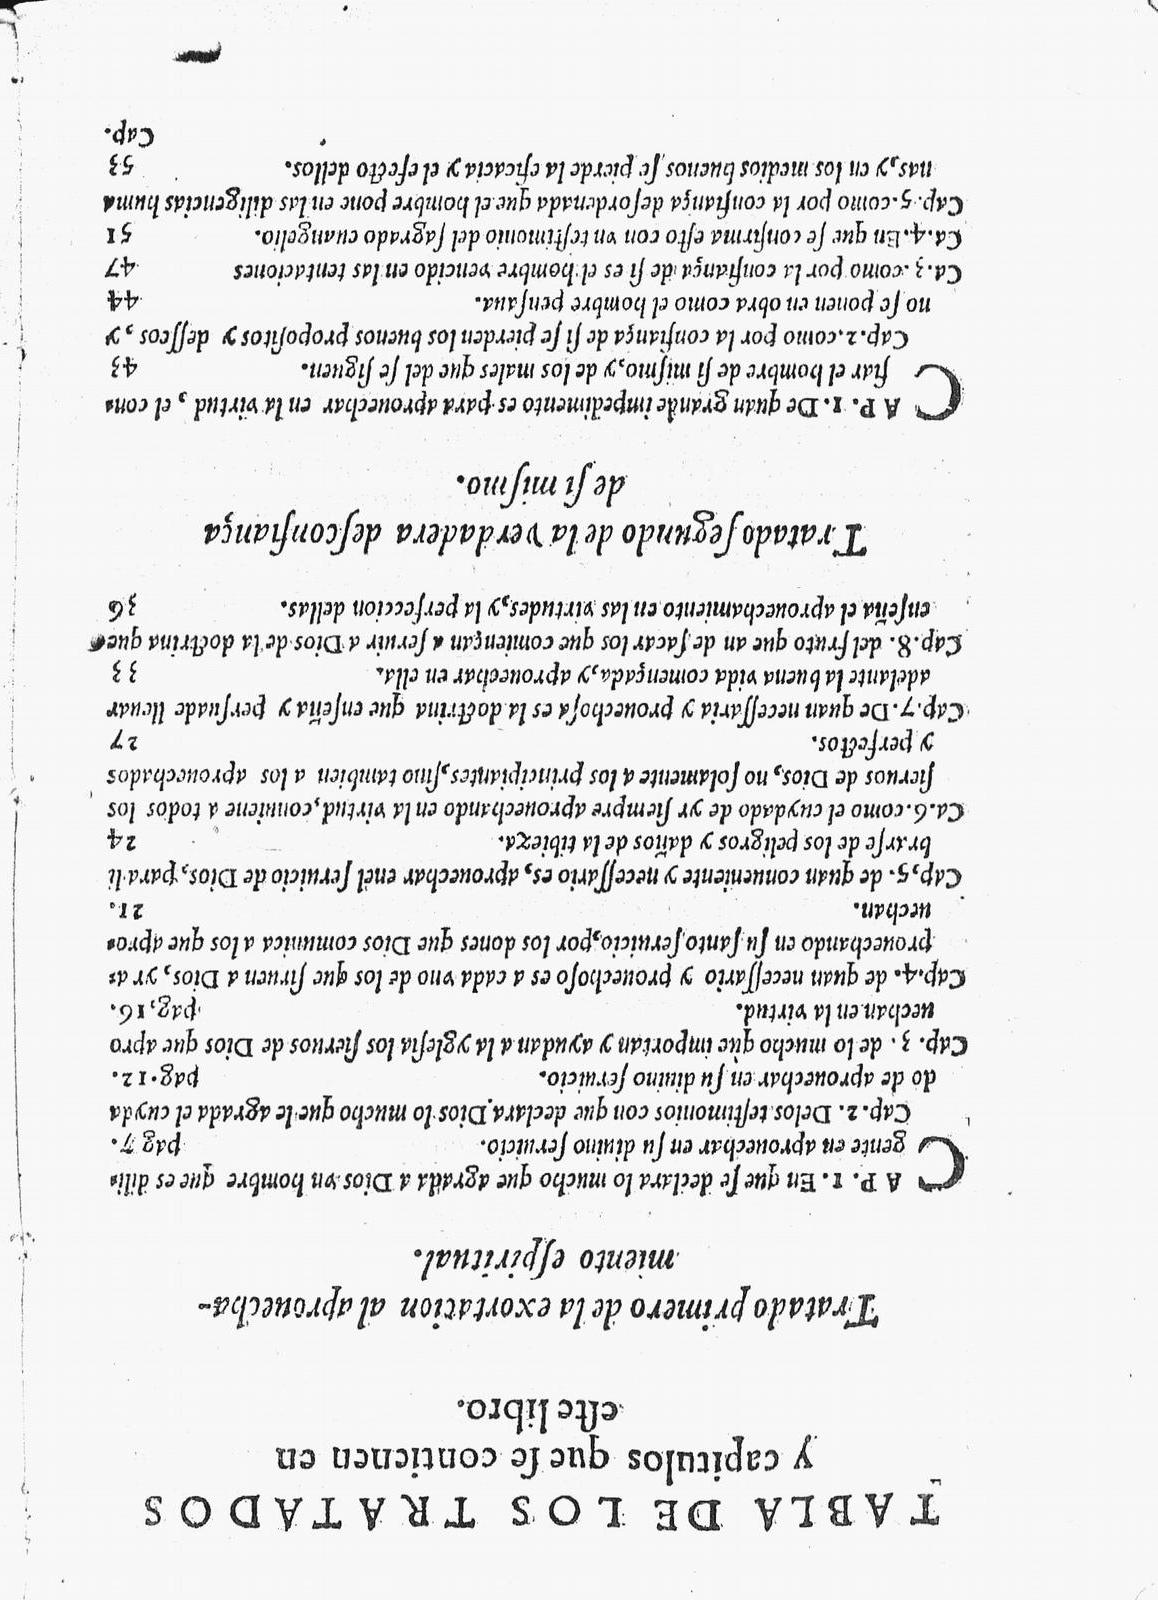 TABLA DE LOS TRATADOS
y capitulos que ſe contienen en
eſte libro.
Tratado primero de la exortation al aprouecha-
miento eſpiritual.
CAP. 1. En que ſe declara lo mucho que agrada a Dios vn hombre que es dili-
gente en aprouechar en ſu diuino ſeruicio. pag 7.
Cap. 2. Delos teſtimonios con que declara Dios lo mucho que le agrada el cuyda
do de aprouechar en ſu diuino ſeruicio. pag. 12.
Cap. 3. de lo mucho que importan y ayudan a la ygleſia los ſieruos de Dios que apro
uechan en la virtud. pag, 16.
Cap. 4. de quan neceſſario y prouechoſo es a cada vno de los que ſiruen a Dios, yr a-
prouechando en ſu ſanto ſeruicio, por los dones que Dios comunica a los que apro-
uechan. 21.
Cap, 5. de quan conueniente y neceſſario es, aprouechar enel ſeruicio de Dios, para li
brarſe de los peligros y daños de la tibieza. 24
Ca. 6. como el cuydado de yr ſiempre aprouechando en la virtud, conuiene a todos los
ſieruos de Dios, no ſolamente a los principiantes, ſino tambien a los aprouechados
y perfectos. 27
Cap. 7. De quan neceſſaria y prouechoſa es la doctrina que enſeña y perſuade lleuar
adelante la buena vida començada, y aprouechar en ella. 33
Cap. 8. del fruto que an de ſacar los que comiençan a ſeruir a Dios de la doctrina que
enſeña el aprouechamiento en las virtudes, y la perfeccion dellas. 36
Tratado ſegundo de la verdadera deſconfiança
de ſi miſmo.
CAP. 1. De quan grande impedimento es para aprouechar en la virtud, el con-
fiar el hombre de ſi miſmo, y de los males que del ſe ſiguen. 43
Cap. 2. como por la confiança de ſi ſe pierden los buenos propoſitos y deſſeos, y
no ſe ponen en obra como el hombre penſaua. 44
Ca. 3. como por la confiança de ſi es el hombre vencido en las tentaciones 47
Ca. 4. En que ſe confirma eſto con vn teſtimonio del ſagrado euangelio. 51
Cap. 5. como por la confiança deſordenada que el hombre pone en las diligencias huma
nas, y en los medios buenos ſe pierde la eficacia y el efecto dellos. 53
Cap.